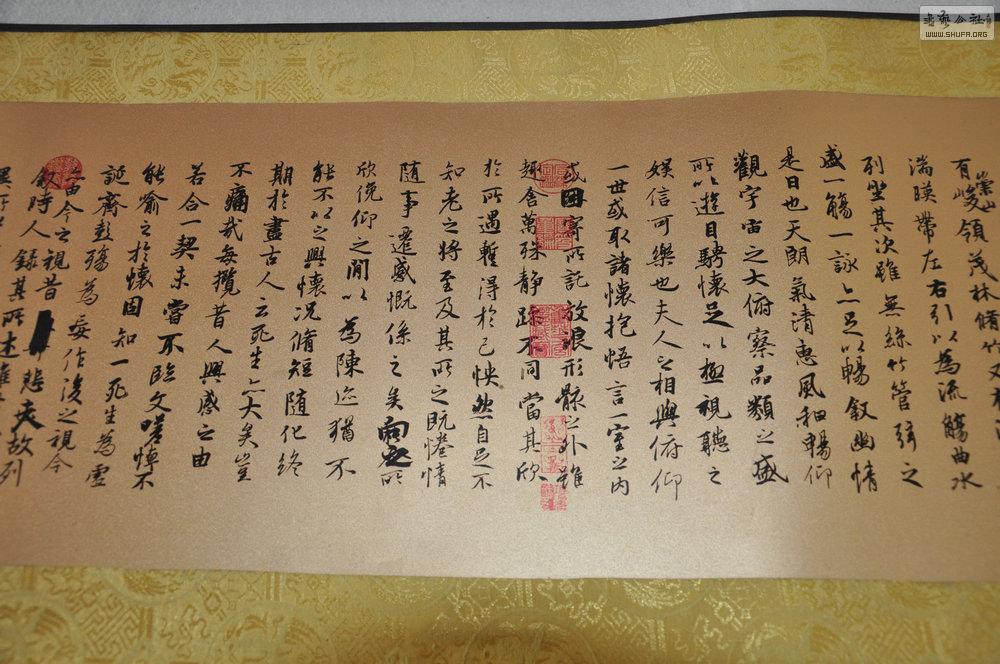 有崇山峻領茂林脩竹又
湍暎帶左右引以為流觴曲水
列坐其次雖無絲竹管弦之
盛一觴一詠亦足以暢敘幽情
是日也天朗氣清惠風和暢仰
觀宇宙之大俯察品類之盛
所以遊目騁懷足以極視聽之
娛信可樂也夫人之相與俯仰
一世或取諸懷抱悟言一室之內
或因寄所託放浪形骸之外雖
趣舍萬殊静躁不同當其欣
於所遇暫得於己怏然自足不
知老之將至及其所之既惓情
隨事遷感慨係之矣向之所
欣俛仰之閒以為陳迹猶不
能不以之興懷況脩短隨化終
期於盡古人云死生亦大矣豈
不痛哉每攬昔人興感之由
若合一契未嘗不臨文嗟悼不
能喻之於懷固知一死生為虛
誕齊彭殤為妄作後之視今
亦由今之視昔悲夫故列
敘時人錄其所述雖
WWW.SHUFA.ORG